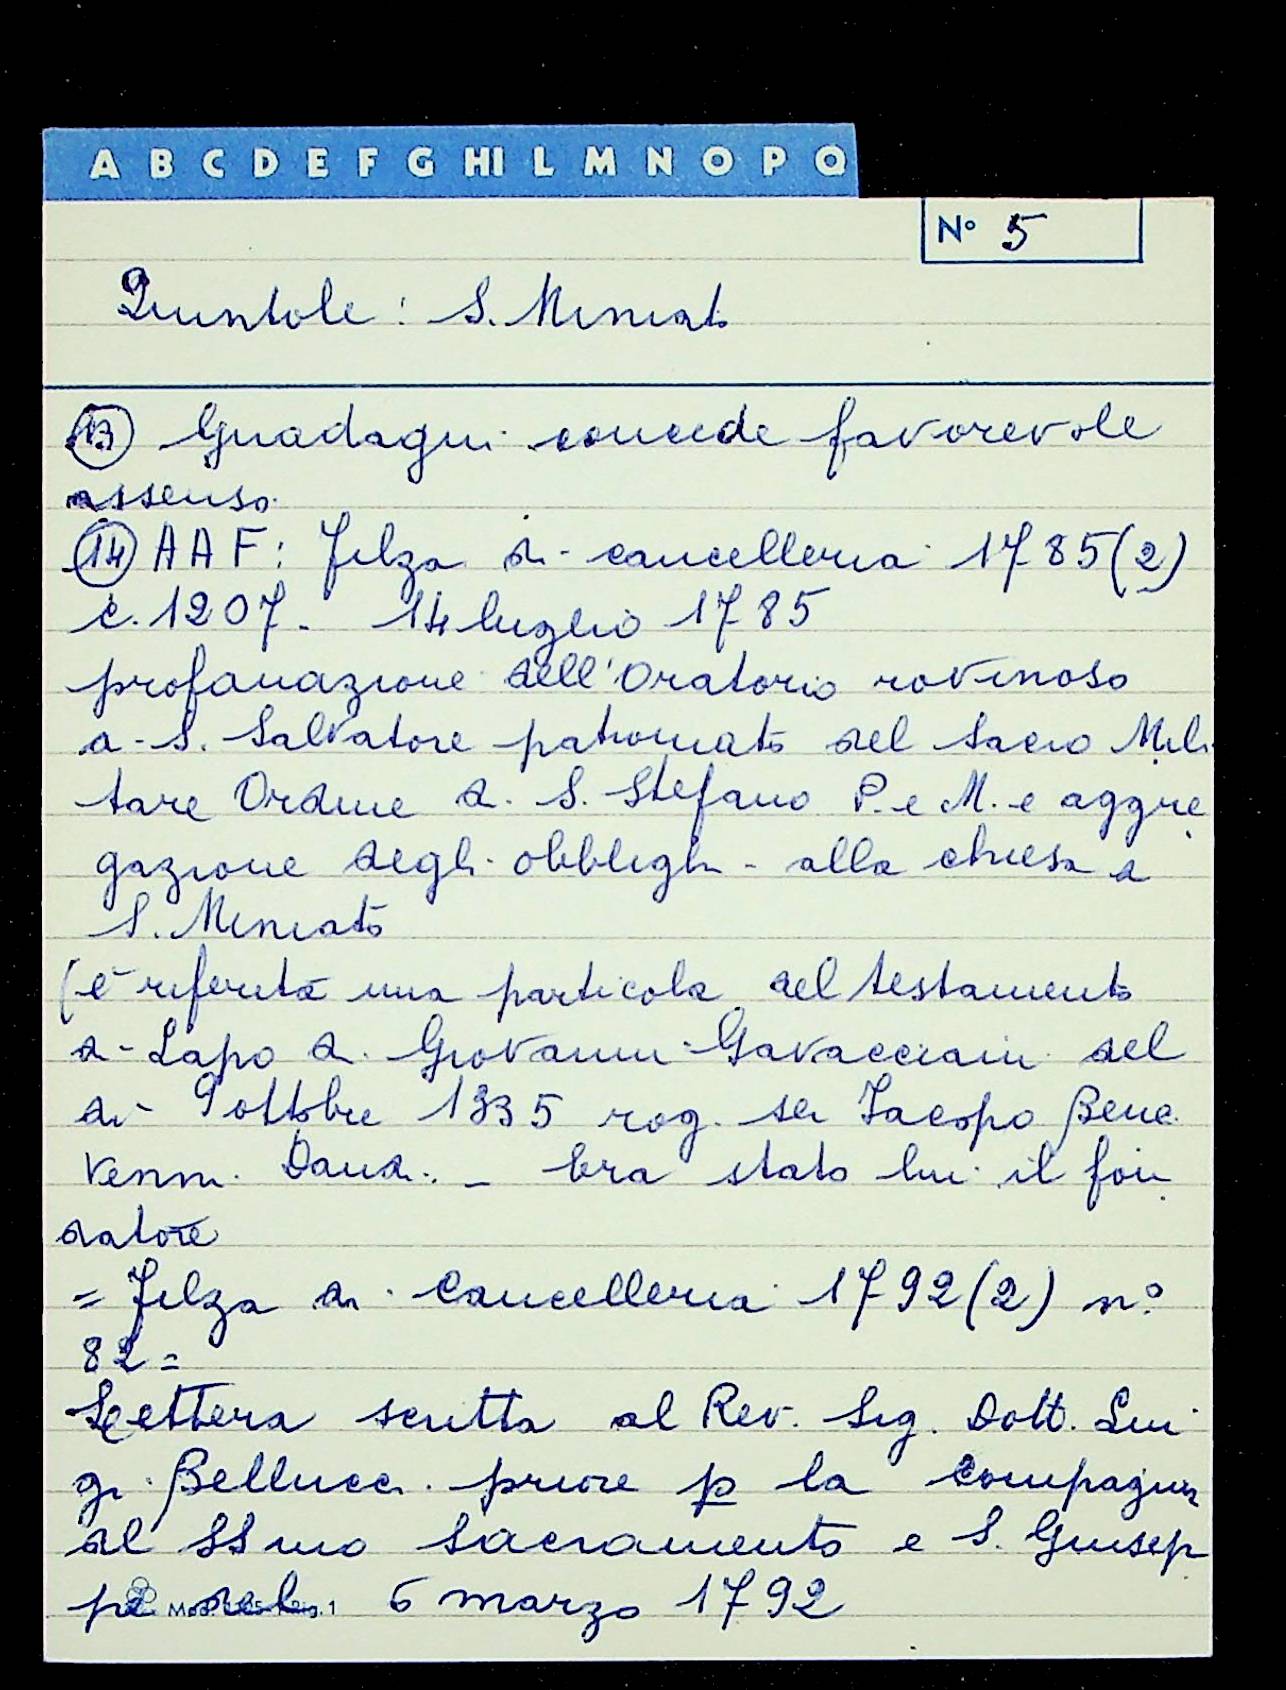 A B C D E F G HI L M N O P Q
N° 5
Quintole: S. Miniato
(13) Guadagni concede favorevole
assenso.
(14) AAF: Filza di cancelleria 1785(2)
c. 1207. 14 luglio 1785
profanazione dell'Oratorio rovinoso
di S. Salvatore patronato del Sacro Mili
tare Ordine di S. Stefano P. e M. e aggre
gazione degli obblighi alla chiesa di
S. Miniato
(è riferita una particola del testamento
di Lapo di Giovanni Gavacciani del
dì 9 ottobre 1335 rog. ser Jacopo Bene
venni Dandi. - Era stato lui il fon
datore
= Filza di Cancelleria 1792(2) n°
82=
Lettera scritta al Rev. Sig. Dott. Lui
gi Bellucci priore p la Compagnia
del SSmo Sacramento e S. Giusep
pe del 6 marzo 1792